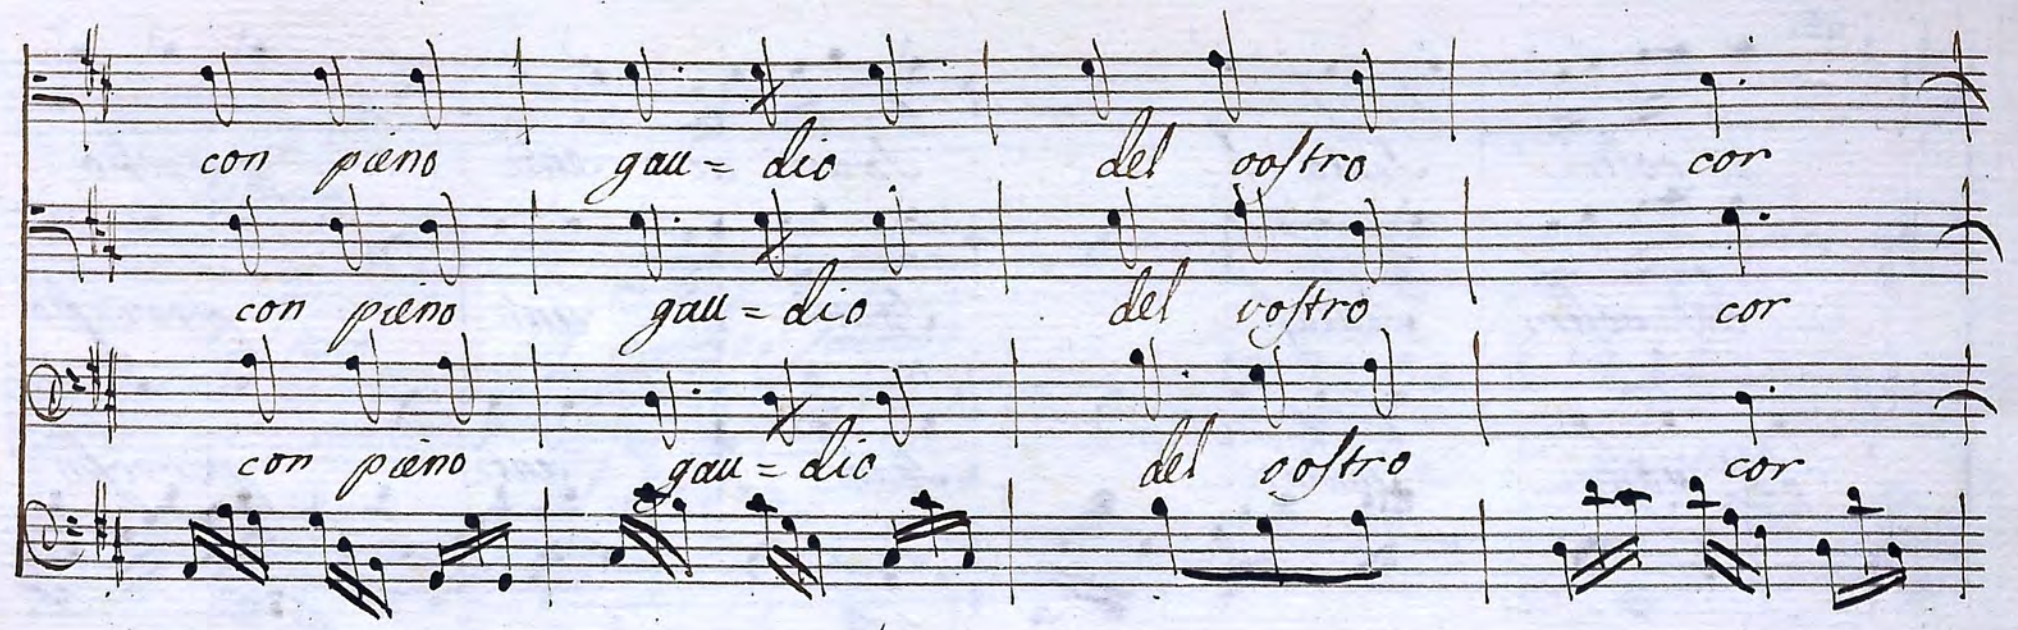 con pieno gau= dio del vostro cor
con pieno gau= dio del vostro cor
con pieno gau= dio del vostro cor